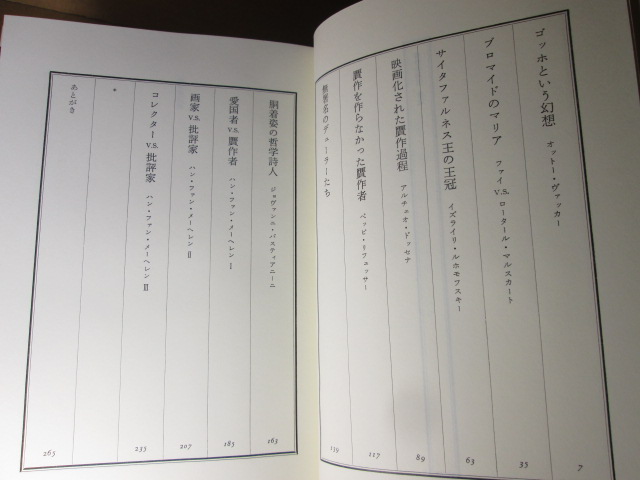 ゴッホという幻想 オットー・ヴァッカー 7
ブロマイドのマリア ファイ v.s. ロータール・マルスカート 35
サイタファルネス王の王冠 イズライリ・ルホモフスキー 63
映画化された贋作過程 アルチェオ・ドッセナ 89
贋作を作らなかった贋作者 ベッピ・リフェッサー 117
無署名のデューラーたち 139
胴着姿の哲学詩人 ジョヴァンニ・バスティアニーニ 163
愛国者 v.s. 贋作者 ハン・ファン・メーヘレン I 185
画家 v.s. 批評家 ハン・ファン・メーヘレン II 207
コレクター v.s. 批評家 ハン・ファン・メーヘレン III 235
*
あとがき 265